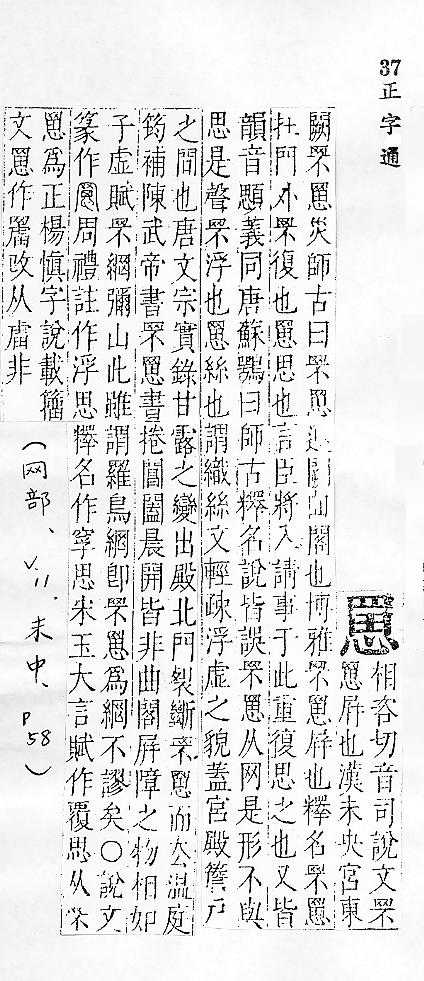 37正字通
罳
相咨切音司說文罘
罳屛也漢未央宮東
闕罘罳災師古曰罘罳連闕曲閣也博雅罘罳屛也釋名罘罳
在門外罘復也罳思也言臣將入請事于此重復思之也又皆
韻音顋義同唐蘇鶚曰師古釋名說皆誤罘罳从网是形不與
思是聲罘浮也罳絲也謂織絲文輕疎浮虛之貌蓋宮殿簷戶
之間也唐文宗實錄甘露之變出殿北門裂斷罘罳而去温庭
筠補陳武帝書罘罳書捲閶闔晨開皆非曲閣屛障之物相如
子虛賦罘網彌山此雖謂羅鳥網卽罘罳爲網不謬矣○說文
篆作周禮註作浮思釋名作思宋玉大言賦作覆思从罘
罳爲正楊慎字說載籒
文罳作改从非
(网部、v.11.未中、P58)